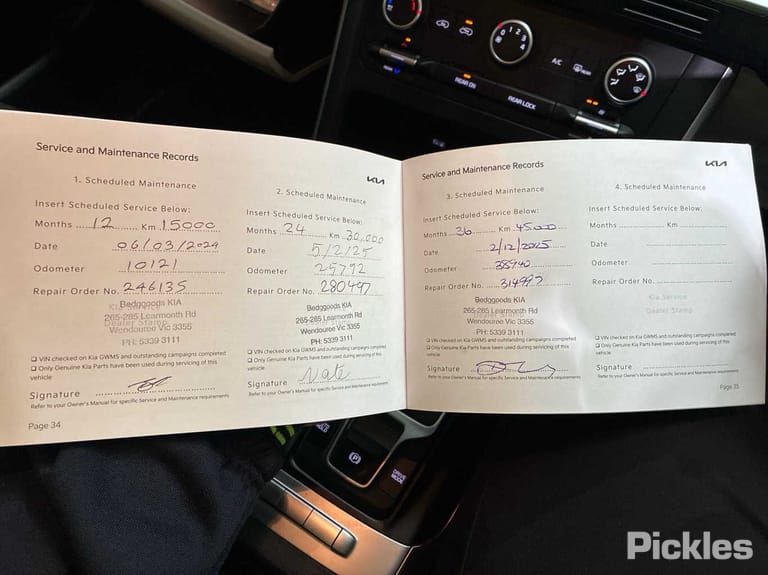 REAR ON
REAR LOCK
A/C
Service and Maintenance Records
KIA
1. Scheduled Maintenance
Insert Scheduled Service Below:
Months 12 Km 15000
Date 06/03/2024
Odometer 10121
Repair Order No. 246135
Bedggoods KIA
265-285 Learmonth Rd
Dealer Stamp
Wendouree Vic 3355
PH: 5339 3111
❑ VIN checked on Kia GWMS and outstanding campaigns completed
❑ Only Genuine Kia Parts have been used during servicing of this
vehicle
Signature
Refer to your Owner's Manual for specific Service and Maintenance requirements
Page 34
2. Scheduled Maintenance
Insert Scheduled Service Below:
Months 24 Km 30,000
Date 5/2/25
Odometer 25792
Repair Order No. 280497
Bedggoods KIA
265-285 Learmonth Rd
Dealer Stamp
Wendouree Vic 3355
PH: 5339 3111
Signature Nate
Refer to your Owner's Manual for specific Service and Maintenance requirements
Service and Maintenance Records
KIA
3. Scheduled Maintenance
Insert Scheduled Service Below:
Months 36 Km 45000
Date 2/12/2025
Odometer 38940
Repair Order No. 314997
Bedggoods KIA
265-285 Learmonth Rd
Dealer Stamp
Wendouree Vic 3355
PH: 5339 3111
❑ VIN checked on Kia GWMS and outstanding campaigns completed
❑ Only Genuine Kia Parts have been used during servicing of this
vehicle
Signature
Refer to your Owner's Manual for specific Service and Maintenance requirements
4. Scheduled Maintenance
Insert Scheduled Service Below:
Months Km
Date
Odometer
Repair Order No.
Kia Service
Dealer Stamp
Signature
Refer to your Owner's Manual for specific Service and Maintenance requirements
Page 35
HOLD
P
DRIVE
MODE
Pickles